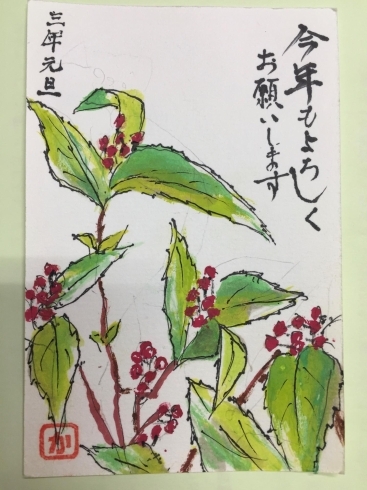 今年もよろしく
お願いします
三年元旦
か